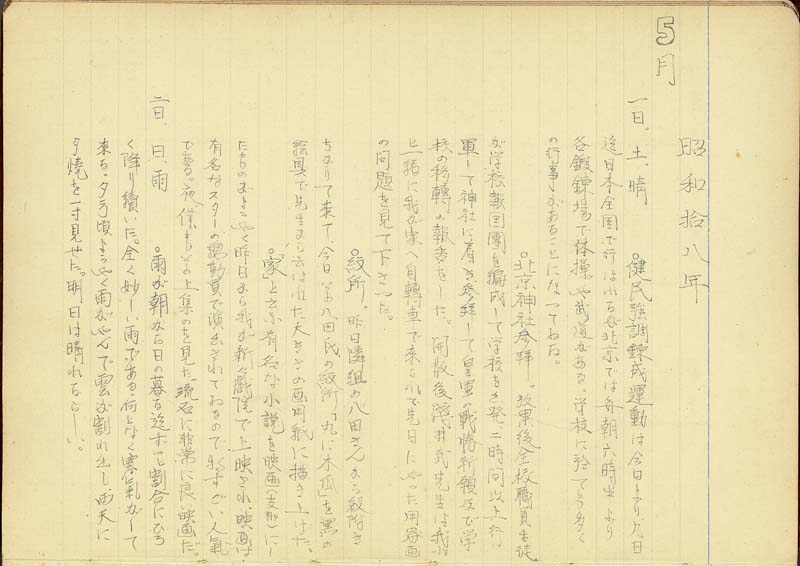 5月
昭和拾八年
一日、土、晴
○健民強調錬成運動は今日より九日
迄日本全国で行はれるが北京では毎朝六時半より
各鍛錬場で体操や武道がある。学校に於ても多く
の行事があることになつてゐる。
○北京神社参拝。放課後全校職員生徒
が学校報国團を編成して学校を出発二時間以上行
軍して神社に着き参拝して皇軍の戦勝祈願及び学
校の移轉の報告をした。解散後澤井武先生は我
と一緒に我が家へ自轉車で来られて先日にやつた用器画
の問題を見て下さつた。
○紋所。昨日隣組の八田さんから紋附き
をかりて来て、今日は八田氏の紋所「丸に木瓜」を黒の
絵具で先生から云はれた大きさの画用紙に描き上げた。
○「家」と云ふ有名な小説を映画(支那)にし
たものがようやく昨日から我が新々戯院で上映され映画は
有名なスターの総動員で演出されてゐるのでものすごい人氣
である。夜、僕も上集のを見た。流石に非常に良い映画だ。
二日、日、雨
○雨が朝から日の暮る迄ずつと割合にひろ
く降り續いた。全く妙しい雨である。何となく寒氣がして
来る。夕方頃ようやく雨がやんで雲が割れ出し、西天に
夕焼を一寸見せた。明日は晴れるらしい。